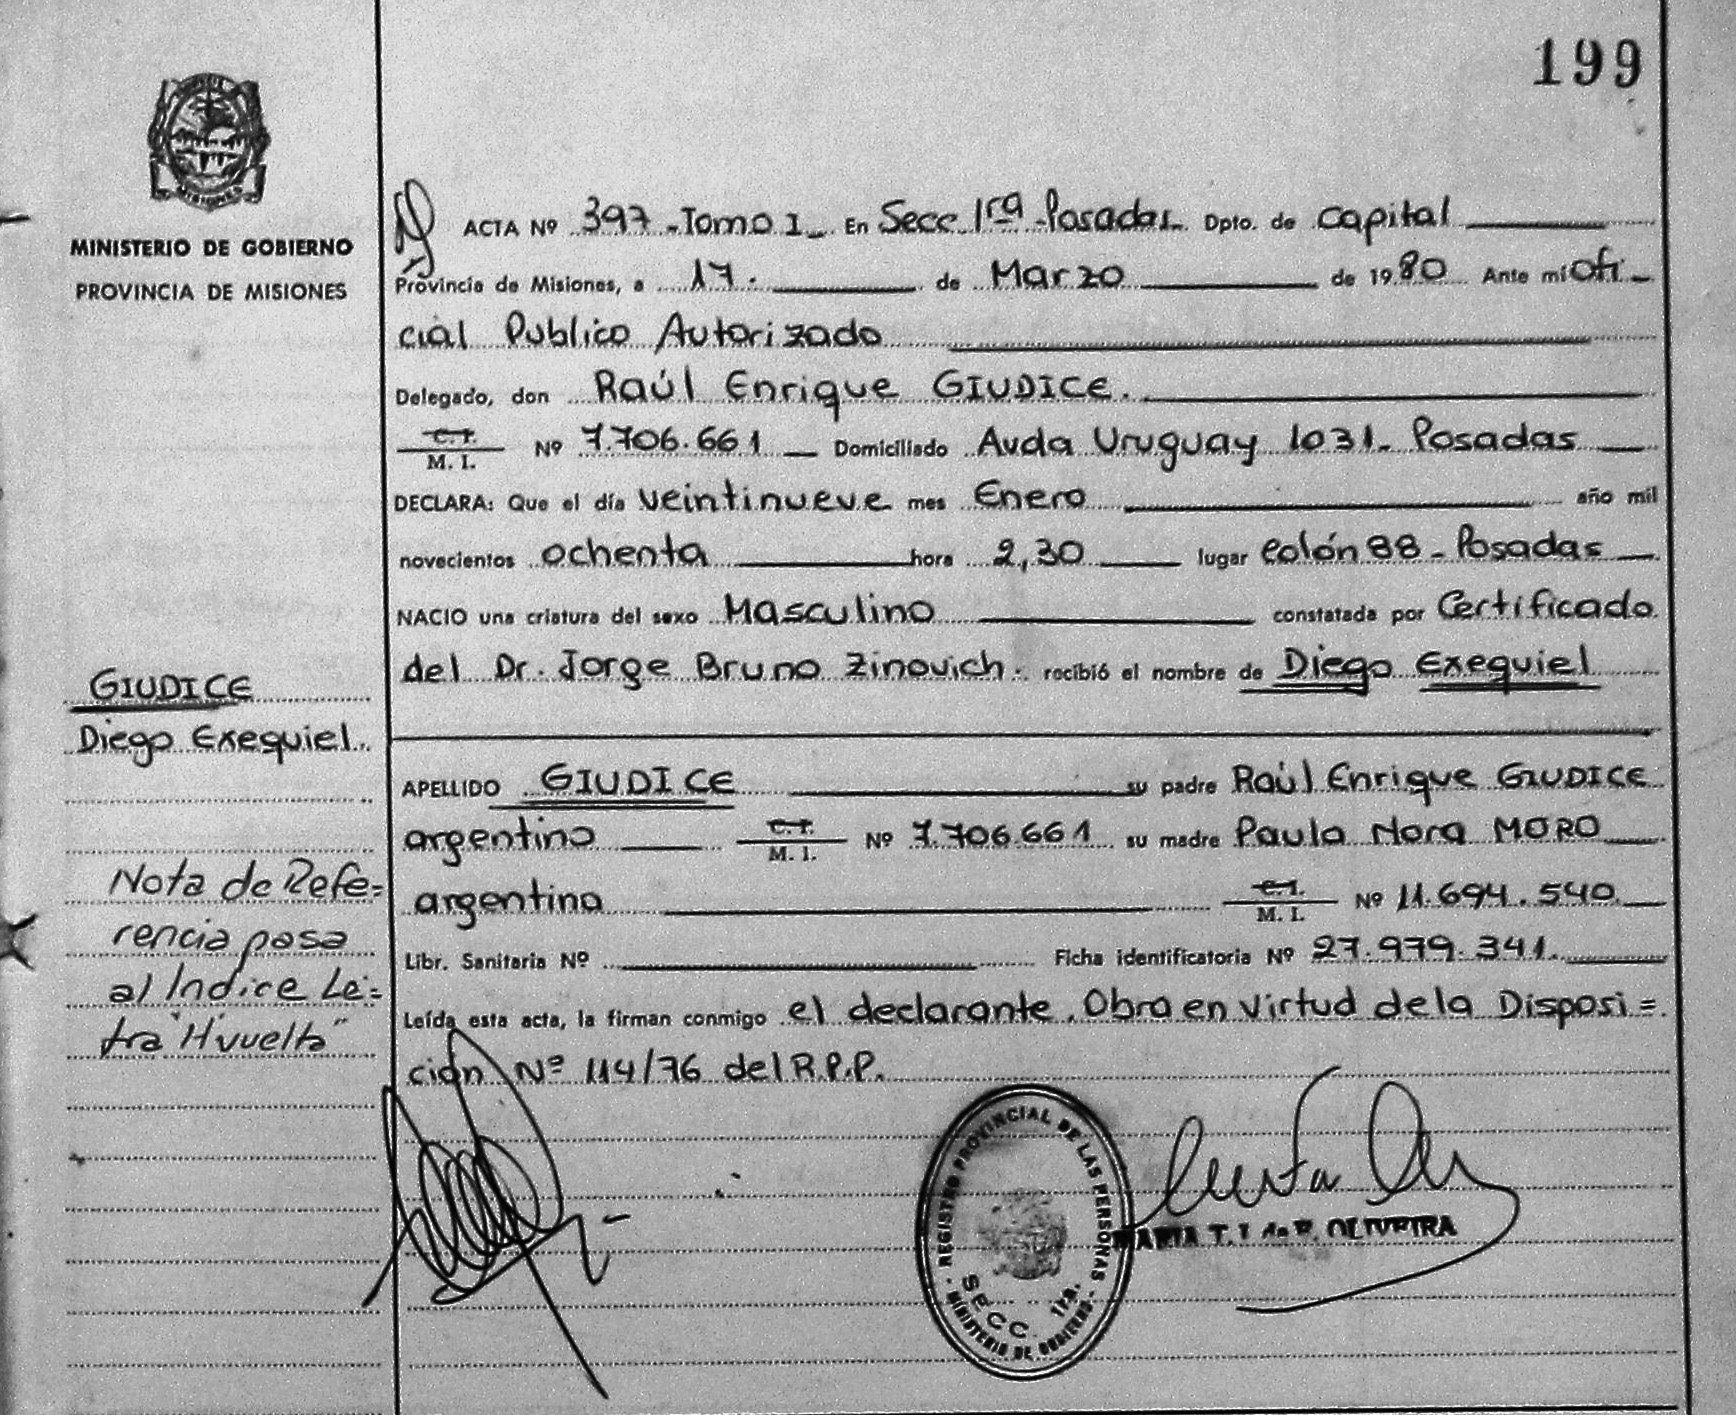 199
MISIONES
MINISTERIO DE GOBIERNO
PROVINCIA DE MISIONES
ACTA Nº 397 - Tomo I - En Secc 1ra - Posadas - Dpto. de Capital
Provincia de Misiones, a 17. de Marzo de 1980 Ante mi Ofi-
cial Publico Autorizado
Delegado, don Raúl Enrique GIUDICE.
C.I. M. I. Nº 7.706.661 Domiciliado Avda Uruguay 1031 - Posadas
DECLARA: Que el día veintinueve mes Enero año mil
novecientos ochenta hora 2,30 lugar Colón 88 - Posadas
NACIO una criatura del sexo Masculino constatada por Certificado
del Dr. Jorge Bruno Zinovich. recibió el nombre de Diego Exequiel
APELLIDO GIUDICE su padre Raúl Enrique GIUDICE
argentino C.I. M. I. Nº 7.706.661 su madre Paula Nora MORO
argentina C.I. M. I. Nº 11.694.540
Libr. Sanitaria Nº Ficha identificatoria Nº 27.979.341.
Leída esta acta, la firman conmigo el declarante. Obra en Virtud de la Disposi=
ción Nº 114/76 del R.P.P.
GIUDICE
Diego Exequiel.
Nota de Refe=
rencia pasa
al Indice Le=
tra "H vuelta"
REGISTRO PROVINCIAL DE LAS PERSONAS
SECC. 1ra.
MINISTERIO DE GOBIERNO
MARIA T. I. de R. OLIVEIRA